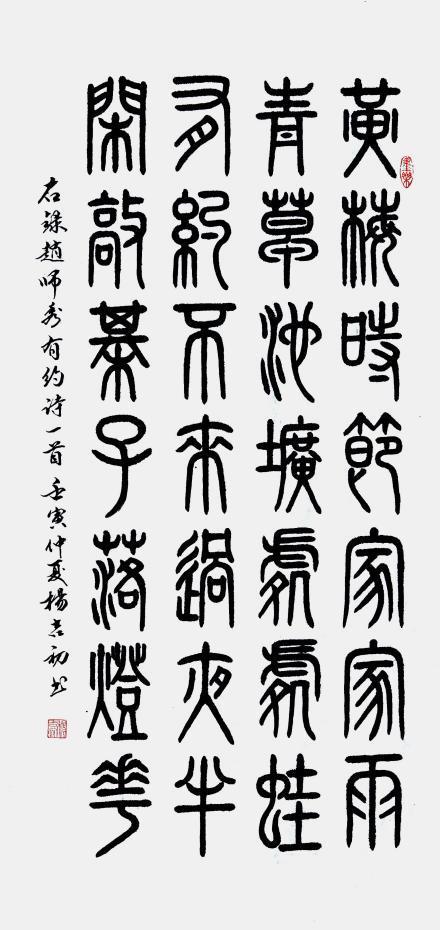 黄梅時節家家雨
青草池壙處處蛙
有約不來過夜半
閑敲棊子落燈華
右錄趙師秀有約詩一首 壬寅仲夏楊吉初书